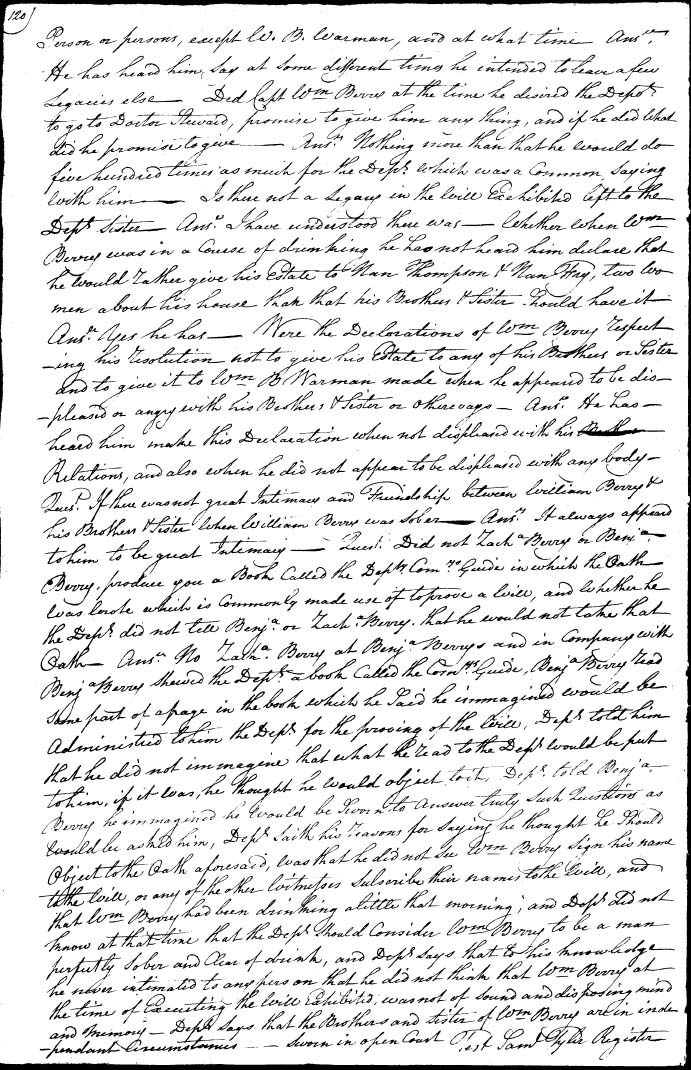 120
Person or persons, except W. B. Warman, and at what time Ansr.
He has heard him say at some different times he intended to leave a few
Legacies else — Did Capt Wm Berry at the time he desired the Dept.
to go to Doctor Steward, promise to give him any thing, and if he did what
did he promise to give — Ansr. Nothing more than that he would do
five hundred times as much for the Dept. which was a Common saying
with him — Is there not a Legacy in the Will Exhibited left to the
Depts. Sister — Ansr. I have understood there was — Whether when Wm
Berry was in a Course of drinking he has not heard him declare that
he would rather give his Estate to Nan Thompson & Nan Fry, two wo-
men about his house than that his Brothers & Sister Should have it
Ansr. Yes he has — Were the Declarations of Wm Berry respect
-ing his resolution not to give his Estate to any of his Brothers or Sister
and to give it to Wm B Warman made when he appeared to be dis-
-pleased or angry with his Brothers & Sister or otherways — Ansr. He has —
heard him make this Declaration when not displeased with his
Relations, and also when he did not appear to be displeased with any body —
Quest. If there was not great Intimacy and Friendship between William Berry &
his Brothers & Sister when William Berry was sober — Ansr. It always appeard
to him to be great Intimacy — Quest. Did not Zacha. Berry or Benja.
Berry, produce you a Book Called the Depty. Comrs. Guide in which the Oath
was wrote which is Commonly made use of to prove a Will, and whether he
the Dept. did not tell Benja. or Zacha. Berry. that he would not take that
Oath — Ansr. No Zacha. Berry at Benja. Berrys and in Company with
Benja. Berry shewed the Dept. a book Called the Comrs. Guide, Benja Berry read
some part of a page in the book which he said he immagined would be
Administred to him the Dept. for the proving of the Will, Dept. told him
that he did not immagine that what he read to the Dept. would be put
to him, if it was, he thought he would object to it, Dept. told Benja.
Berry he immagined he would be Sworn to Answer truly such Questions as
would be asked him, Dept. saith his reasons for saying he thought he should
Object to the Oath aforesaid, was that he did not see Wm Berry sign his name
to the Will, or any of the other Witnesses subscribe their names to the Will, and
that Wm Berry had been drinking a little that morning, and Dept. did not
know at that time that the Dept. should Consider Wm Berry to be a man
perfectly sober and Clear of drink, and Dept. says that to his knowledge
he never intimated to any person that he did not think that Wm Berry at
the time of Executing the Will Exhibited, was not of sound and disposing mind
and memory — Dept. says that the Brothers and Sister of Wm Berry are in inde
-pendant Circumstances — Sworn in open Court Test Saml Tyler Register